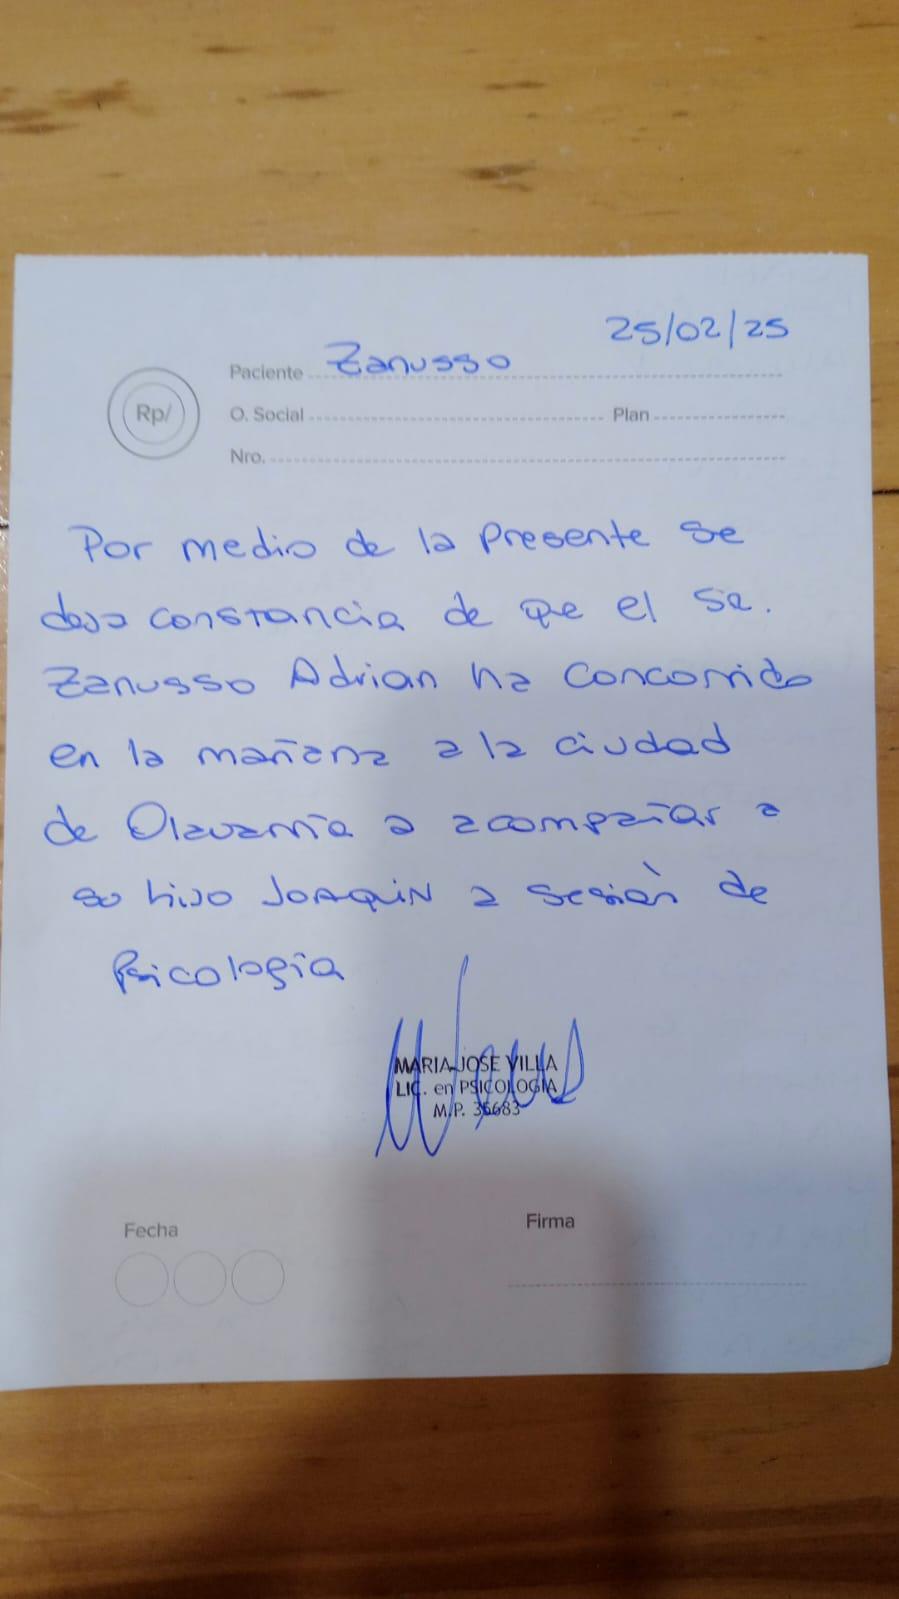 25/02/25
Paciente Zanusso
Rp/
O. Social Plan
Nro.
Por medio de la presente se
deja constancia de que el Sr.
Zanusso Adrian ha concorrido
en la mañana a la ciudad
de Olavarría a acompañar a
su hijo JOAQUIN a sesión de
Psicología
MARIA JOSE VILLA
LIC. en PSICOLOGIA
M.P. 35683
Fecha Firma